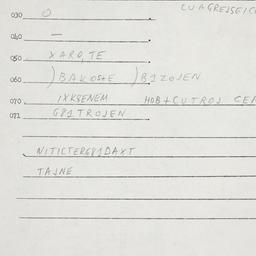 CUAGREJSEIC
030 O
040 —
050 XAROTE
060 )BAKOSTE )BIZOJEN
070 IXKSENEM HOB+CUTROJ CEA
071 G81TROJEN
NITICTERG81DAXT
TAJNE